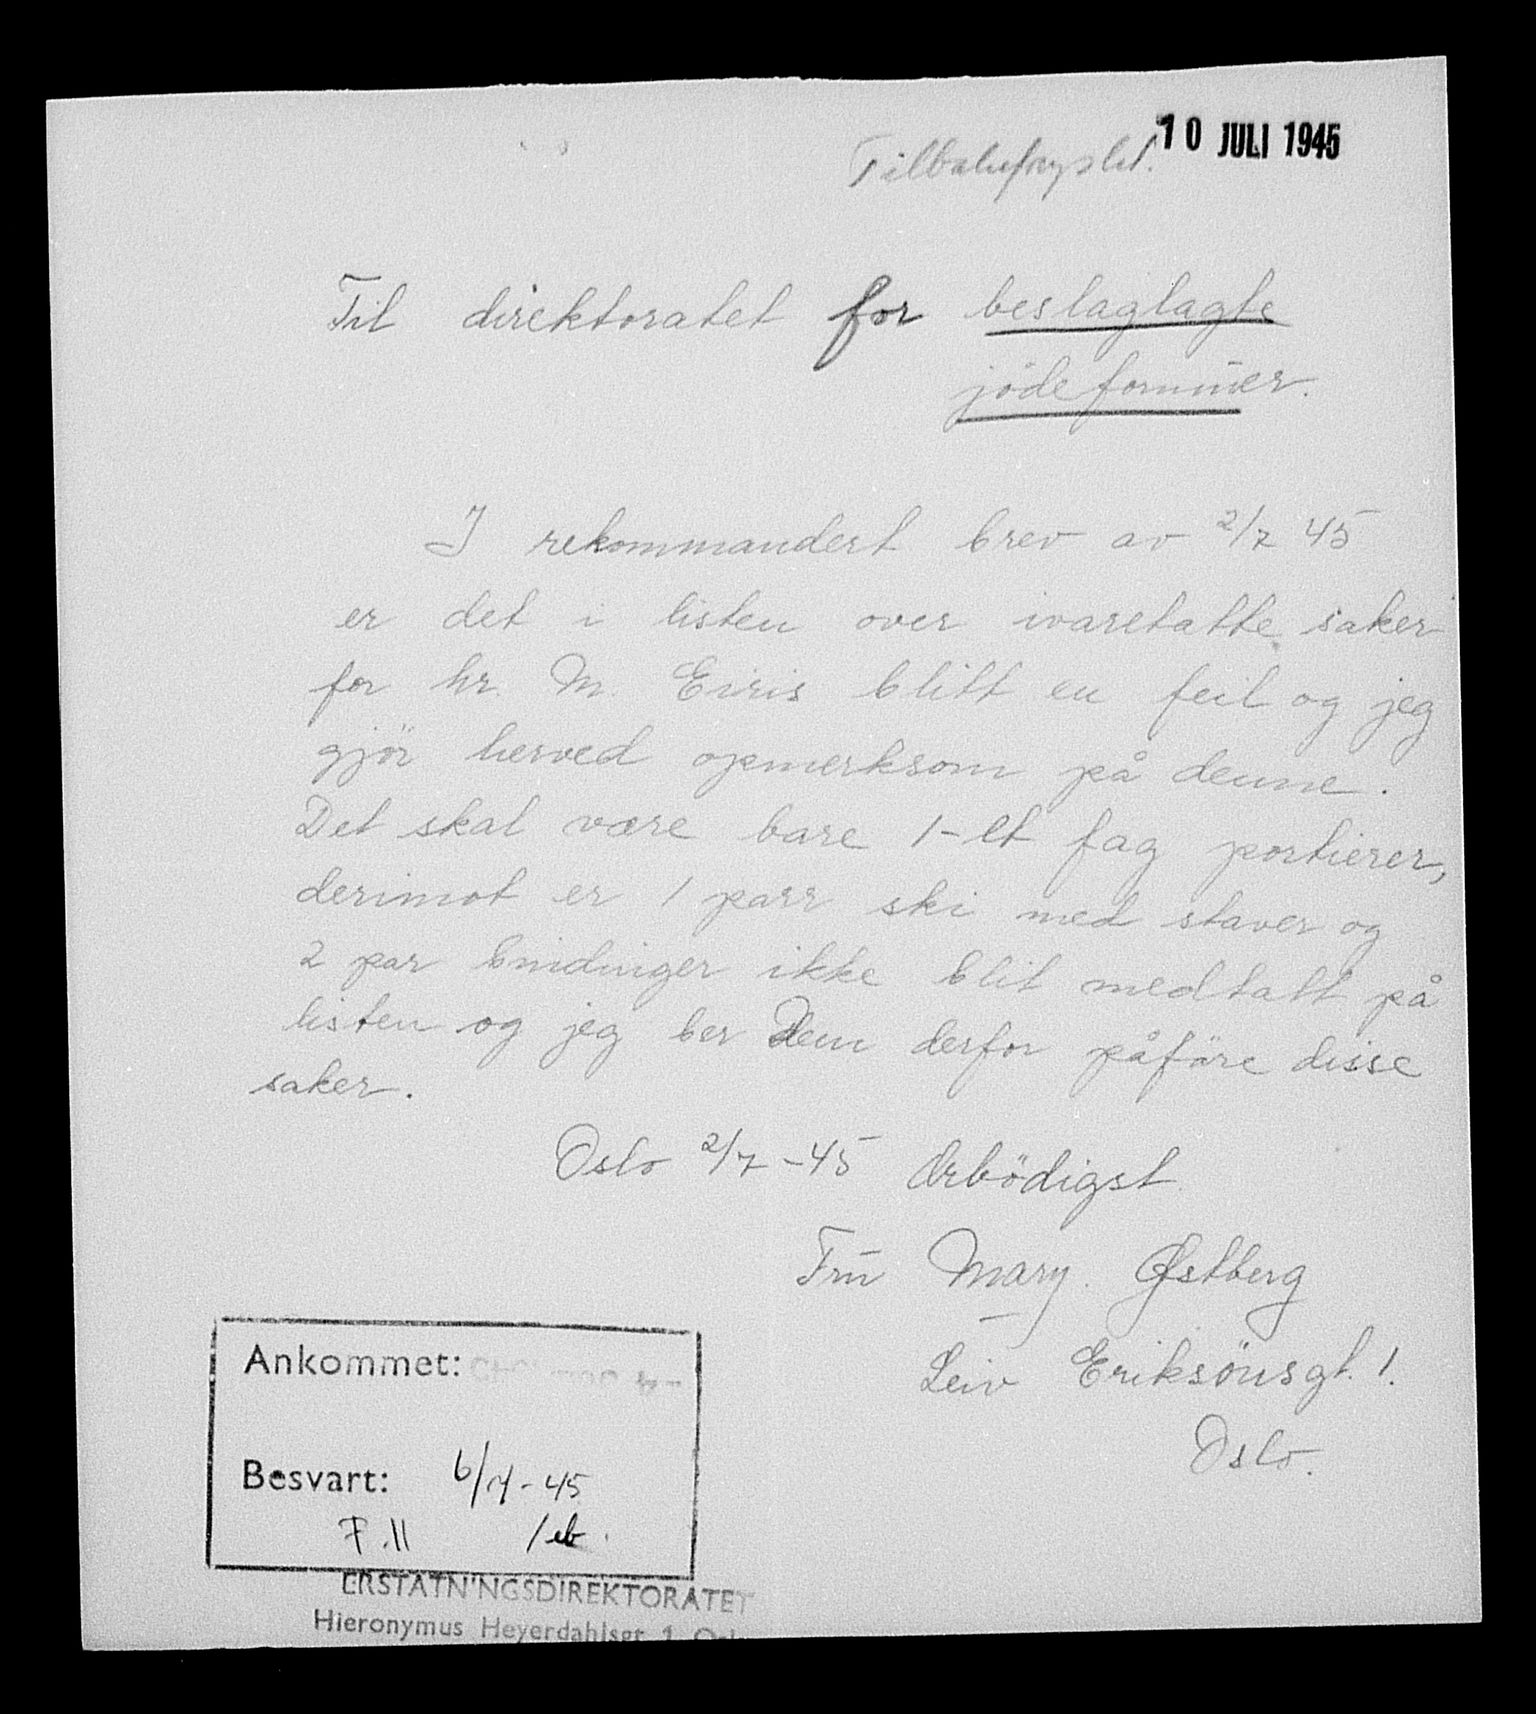 10 JULI 1945
Til direktoratet for beslaglagte
jödeformuer.
I rekommandert brev av 2/7 45
er det i listen over ivaretatte saker
for hr. M. Eiris blitt en feil og jeg
gjör herved opmerksom på denne.
Det skal være bare 1-et fag portierer,
derimot er 1 parr ski med staver og
2 par bindinger ikke blit medtatt på
listen og jeg ber Dem derfor påföre disse
saker.
Oslo 2/7-45 Ærbödigst
Fru Mary Østberg
Leiv Eriksönsgt. 1.
Oslo.
Ankommet:
Besvart: 6/7-45
F.11 /eb.
ERSTATNINGSDIREKTORATET
Hieronymus Heyerdahlsgt. 1